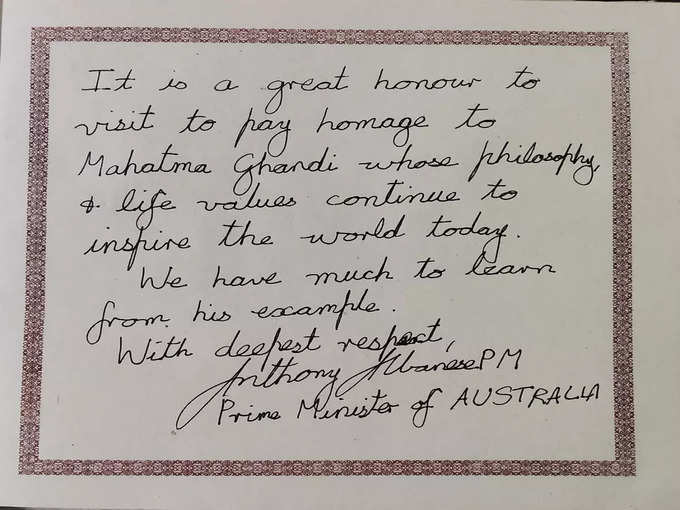 It is a great honour to
visit to pay homage to
Mahatma Ghandi whose philosophy,
& life values continue to
inspire the world today.
We have much to learn
from his example.
With deepest respect,
Anthony Albanese PM
Prime Minister of AUSTRALIA